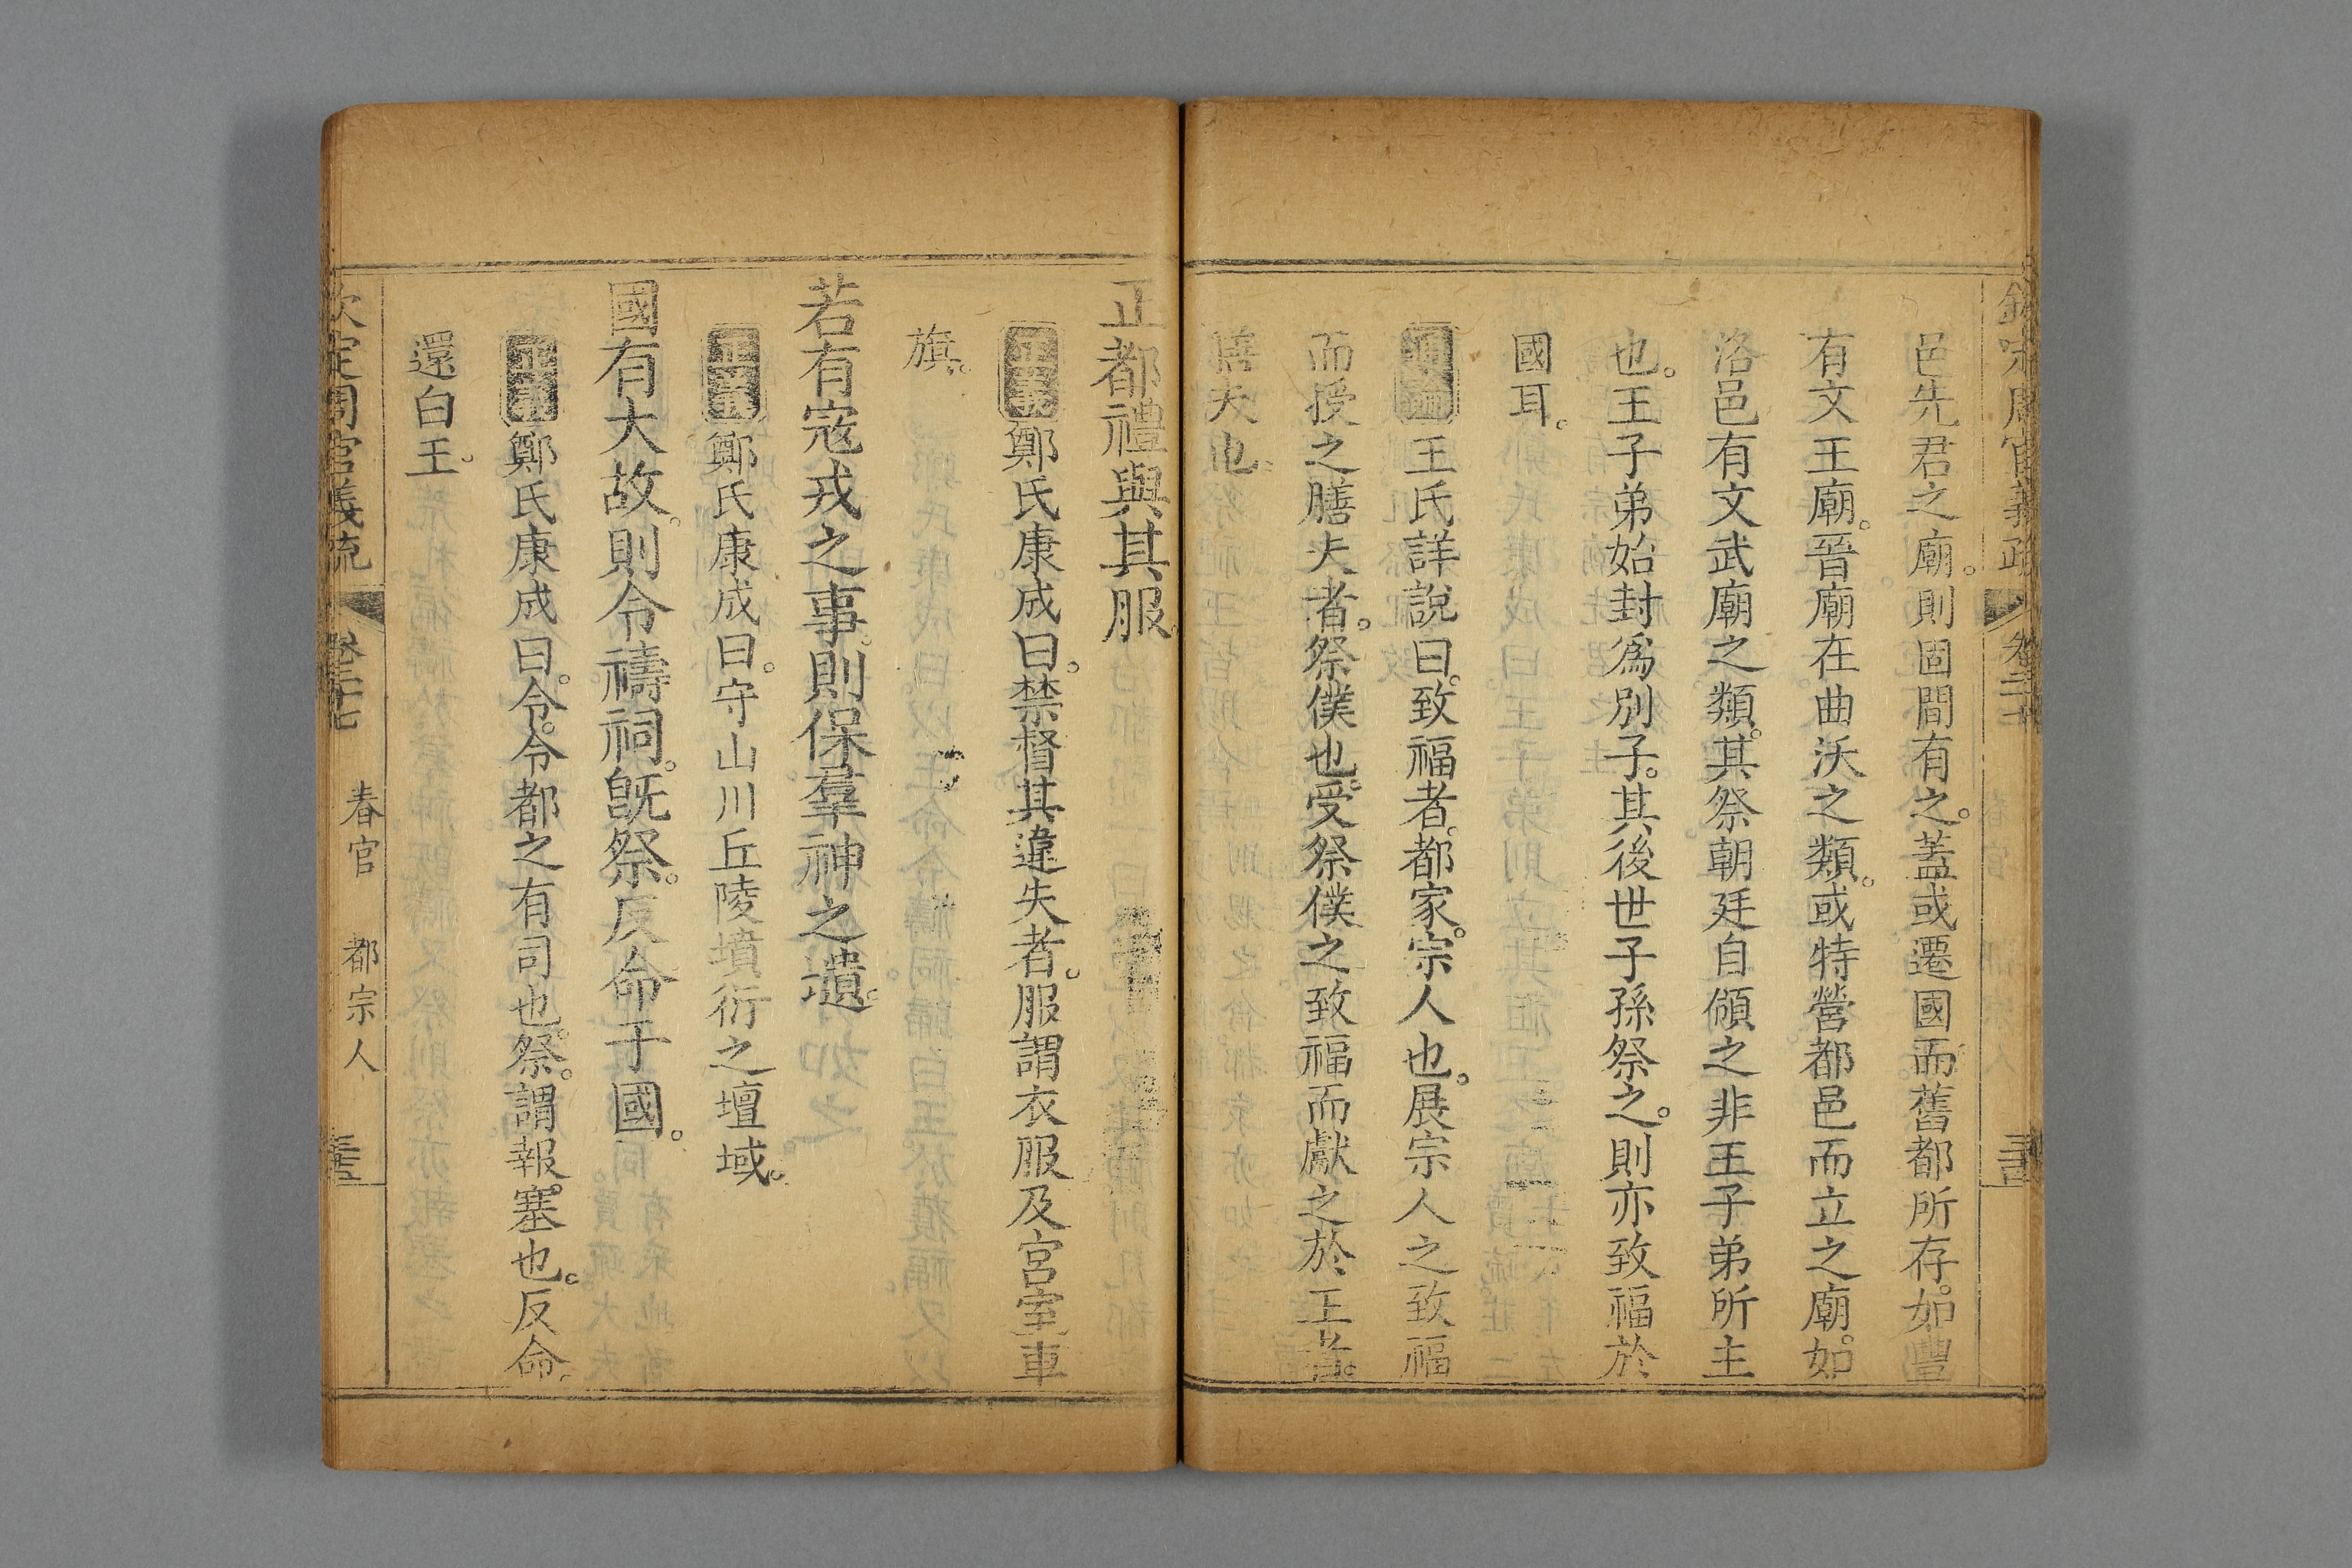 欽定周官義疏 卷二十七
邑先君之廟。則固間有之。蓋或遷國而舊都所存。如豐
有文王廟。晉廟在曲沃之類。或特營都邑而立之廟。如
洛邑有文武廟之類。其祭朝廷自頒之非王子弟所主
也。王子弟始封爲別子。其後世子孫祭之。則亦致福於
國耳。
通論王氏詳說曰。致福者。都家宗人也。展宗人之致福
而授之膳夫者。祭僕也。受祭僕之致福而獻之於王者。
膳夫也。
正都禮與其服。
正義鄭氏康成曰。禁督其違失者。服謂衣服及宮室車
旗。
若有寇戎之事。則保羣神之壝。
正義鄭氏康成曰。守山川丘陵墳衍之壇域。
國有大故。則令禱祠。旣祭。反命于國。
正義鄭氏康成曰。令。令都之有司也。祭。謂報塞也。反命。
還白王。
欽定周官義疏 卷二十七 春官 都宗人